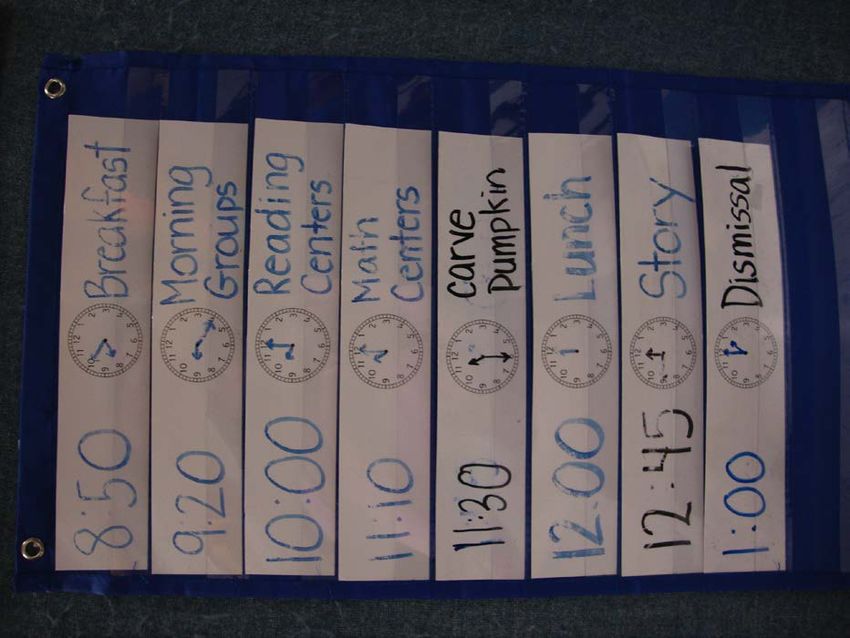 8:50 Breakfast
9:20 Morning
Groups
10:00 Reading
Centers
11:10 Math
Centers
11:30 carve
pumpkin
12:00 Lunch
12:45 Story
1:00 Dismissal